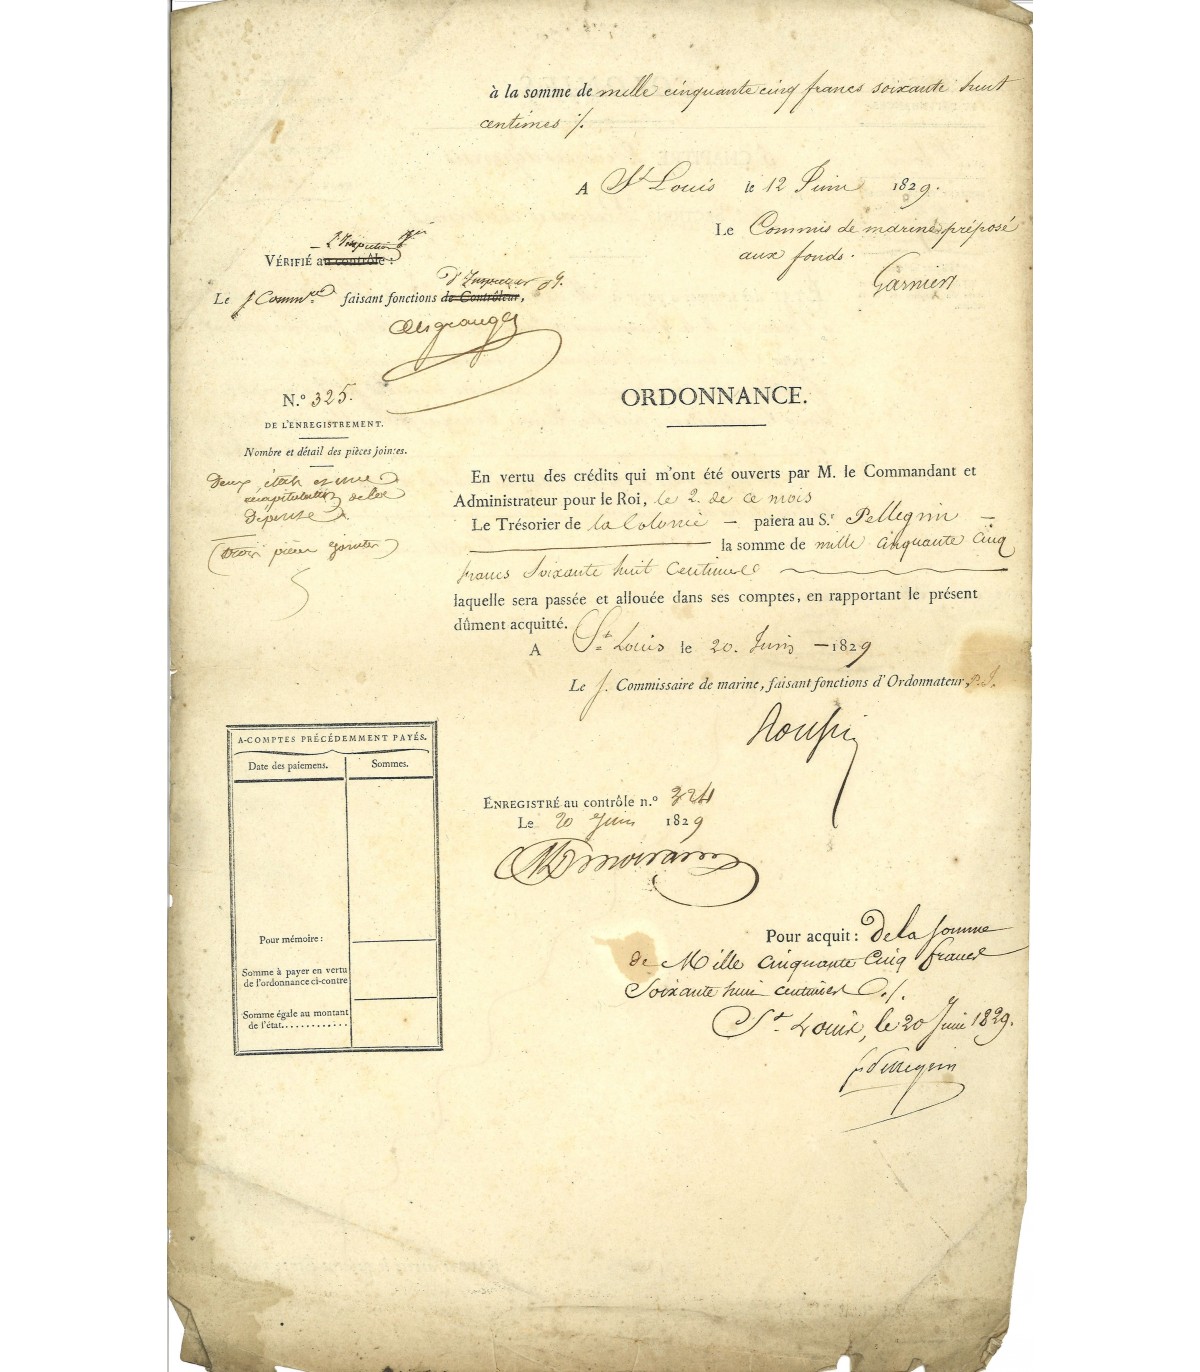 à la somme de mille cinquante cinq francs soixante huit
centimes ./.
A St Louis le 12 Juin 1829.
Le Commis de marine préposé
aux fonds.
Garnier
l'Inspection
VÉRIFIÉ au contrôle :
d'Inspecteur
Le s/ Commre faisant fonctions de Contrôleur,
N.° 325.
DE L'ENREGISTREMENT.
Nombre et détail des pièces jointes.
Deux états et une
récapitulation de la
dépense
(trois pièces jointes)
ORDONNANCE.
En vertu des crédits qui m'ont été ouverts par M. le Commandant et
Administrateur pour le Roi, le 2. de ce mois
Le Trésorier de la Colonie — paiera au S.r Pellegrin —
la somme de mille cinquante cinq
francs soixante huit centimes
laquelle sera passée et allouée dans ses comptes, en rapportant le présent
dûment acquitté.
A St Louis le 20. Juin — 1829
Le s/ Commissaire de marine, faisant fonctions d'Ordonnateur, P. I.
A-COMPTES PRÉCÉDEMMENT PAYÉS.
Date des paiemens. Sommes.
Pour mémoire :
Somme à payer en vertu
de l'ordonnance ci-contre
Somme égale au montant
de l'état............
ENREGISTRÉ au contrôle n.° 324
Le 20 Juin 1829
Pour acquit : De la somme
de Mille cinquante cinq francs
soixante huit centimes ./.
St Louis, le 20 Juin 1829.
Pellegrin